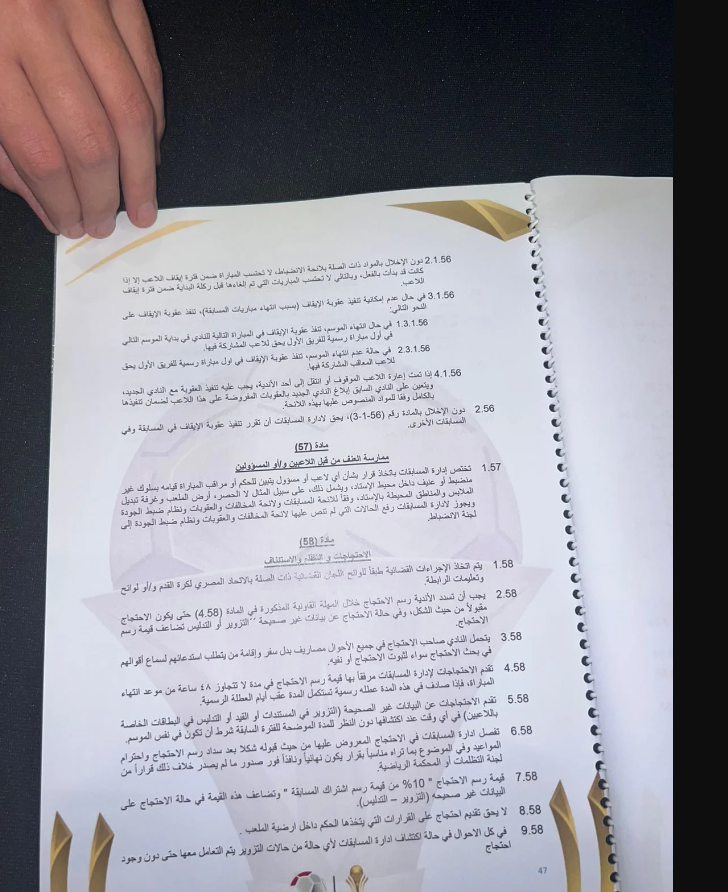 2.1.56 دون الإخلال بالمواد ذات الصلة بلائحة الانضباط، لا تحتسب المباراة ضمن فترة إيقاف اللاعب إلا إذا
كانت قد بدأت بالفعل، وبالتالي لا تحتسب المباريات التي تم إلغاءها قبل ركلة البداية ضمن فترة إيقاف
اللاعب.
3.1.56 في حال عدم إمكانية تنفيذ عقوبة الإيقاف (بسبب انتهاء مباريات المسابقة)، تنفذ عقوبة الإيقاف على
النحو التالي:
1.3.1.56 في حال انتهاء الموسم، تنفذ عقوبة الإيقاف في المباراة التالية للنادي في بداية الموسم التالي
في أول مباراة رسمية للفريق الأول يحق للاعب المشاركة فيها.
2.3.1.56 في حالة عدم انتهاء الموسم، تنفذ عقوبة الإيقاف في اول مباراة رسمية للفريق الأول يحق
للاعب المعاقب المشاركة فيها.
4.1.56 إذا تمت إعارة اللاعب الموقوف أو انتقل إلى أحد الأندية، يجب عليه تنفيذ العقوبة مع النادي الجديد،
ويتعين على النادي السابق إبلاغ النادي الجديد بالعقوبات المفروضة على هذا اللاعب لضمان تنفيذها
بالكامل وفقا للمواد المنصوص عليها بهذه اللائحة.
2.56 دون الإخلال بالمادة رقم (56-1-3)، يحق لادارة المسابقات أن تقرر تنفيذ عقوبة الإيقاف في المسابقة وفي
المسابقات الأخرى.
مادة (57)
ممارسة العنف من قبل اللاعبين و/أو المسؤولين
1.57 تختص إدارة المسابقات باتخاذ قرار بشأن أي لاعب أو مسؤول يتبين للحكم أو مراقب المباراة قيامه بسلوك غير
منضبط أو عنيف داخل محيط الإستاد، ويشمل ذلك، على سبيل المثال لا الحصر، أرض الملعب وغرفة تبديل
الملابس والمناطق المحيطة بالإستاد، وفقاً للائحة المسابقات ولائحة المخالفات والعقوبات ونظام ضبط الجودة
ويجوز لادارة المسابقات رفع الحالات التي لم تنص عليها لائحة المخالفات والعقوبات ونظام ضبط الجودة إلى
لجنة الانضباط.
مادة (58)
الاحتجاجات و التظلم والاستئناف
1.58 يتم اتخاذ الإجراءات القضائية طبقاً للوائح اللجان القضائية ذات الصلة بالاتحاد المصري لكرة القدم و/أو لوائح
وتعليمات الرابطة.
2.58 يجب أن تسدد الأندية رسم الاحتجاج خلال المهلة القانونية المذكورة في المادة (4.58) حتى يكون الاحتجاج
مقبولاً من حيث الشكل، وفي حالة الاحتجاج عن بيانات غير صحيحة "التزوير أو التدليس تضاعف قيمة رسم
الاحتجاج.
3.58 يتحمل النادي صاحب الاحتجاج في جميع الأحوال مصاريف بدل سفر وإقامة من يتطلب استدعائهم لسماع أقوالهم
في بحث الاحتجاج سواء لثبوت الاحتجاج أو نفيه.
4.58 تقدم الاحتجاجات لإدارة المسابقات مرفقاً بها قيمة رسم الاحتجاج في مدة لا تتجاوز ٤٨ ساعة من موعد انتهاء
المباراة، فإذا صادف في هذه المدة عطله رسمية تستكمل المدة عقب أيام العطلة الرسمية.
5.58 تقدم الاحتجاجات عن البيانات غير الصحيحة (التزوير في المستندات أو القيد أو التدليس في البطاقات الخاصة
باللاعبين) في أي وقت عند اكتشافها دون النظر للمدة الموضحة للفترة السابقة شرط أن تكون في نفس الموسم.
6.58 تفصل ادارة المسابقات في الاحتجاج المعروض عليها من حيث قبوله شكلا بعد سداد رسم الاحتجاج واحترام
المواعيد وفي الموضوع بما تراه مناسباً بقرار يكون نهائياً ونافذاً فور صدور ما لم يصدر خلاف ذلك قراراً من
لجنة التظلمات أو المحكمة الرياضية.
7.58 قيمة رسم الاحتجاج " 10% من قيمة رسم اشتراك المسابقة " وتضاعف هذه القيمة في حالة الاحتجاج على
البيانات غير صحيحه (التزوير – التدليس).
8.58 لا يحق تقديم احتجاج على القرارات التي يتخذها الحكم داخل ارضية الملعب .
9.58 في كل الاحوال في حالة اكتشاف ادارة المسابقات لأي حالة من حالات التزوير يتم التعامل معها حتى دون وجود
احتجاج
47